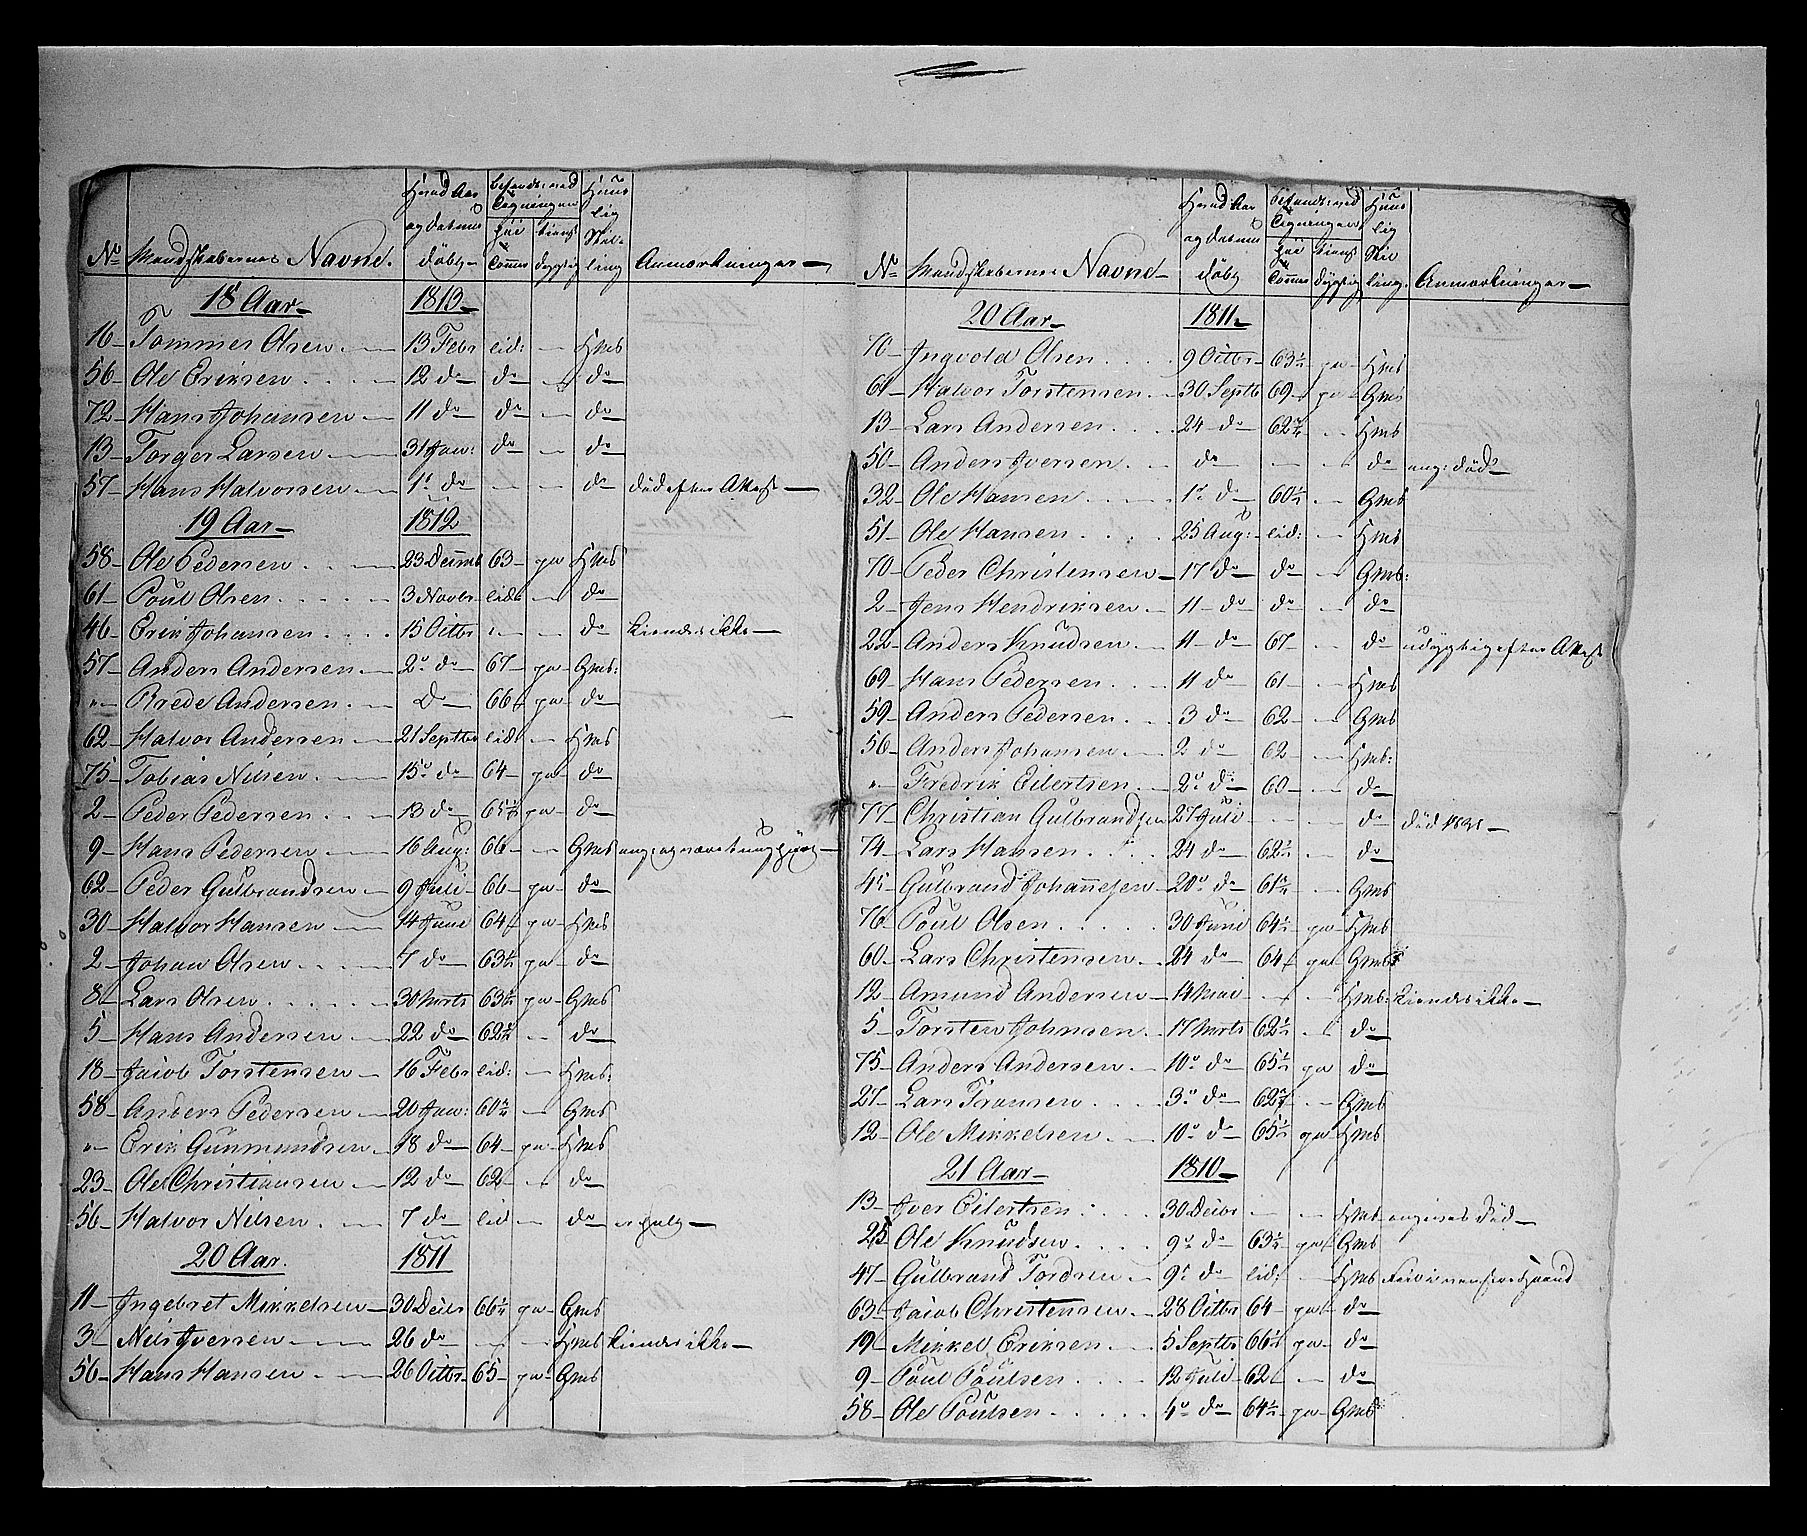 No Mandskabernes Navne. Hvad Aar og Datum döbt befunden ved Tegningen höi Tommer tienst dygtig Huus lig Stil- ling Anmærkninger
18 Aar 1813
16 Tommes Olsen 13 Febr lid: — Hms
56 Ole Eriksen 12 do do — do
72 Hans Johansen 11 do do — do
13 Torger Larsen 31 Jan: do — do
57 Hans Halvorsen 1 do — — do död efter Attest
19 Aar 1812
58 Ole Pedersen 23 Decmb 63 ja Hms
61 Poul Olsen 3 Novbr lid: — do
46 Erik Johansen 15 Octbr — — do kiendes ikke
57 Anders Andersen 2 do 67 ja Gms:
" Brede Andersen do 66 ja do
62 Halvor Andersen 21 Septbr lid: — Hms
75 Tobias Nilsen 15 do 64 ja do
2 Peder Pedersen 13 do 65½ ja do
9 Hans Pedersen 16 Aug: 66 — Gms
62 Peder Gulbrandsen 9 Juli 66 ja do
30 Halvor Hansen 14 Juni 64 ja Hms
2 Johan Olsen 7 do 63½ ja do
8 Lars Olsen 30 Marts 63½ ja Gms
5 Hans Andersen 22 do 62½ — do
18 Jacob Torstensen 16 Febr lid: — Hms:
58 Anders Pedersen 20 Jan: 60 — Gms
" Erik Gunmundsen 18 do 64 ja Hms
23 Ole Christiansen 12 do 62 — do
56 Halvor Nilsen 7 do lid — do
20 Aar. 1811
11 Ingebret Mikkelsen 30 Decbr 66½ ja Gms
3 Nils Iversen 26 do — — Hms kiendes ikke
56 Hans Hansen 26 Octbr 65 ja Gms
No Mandskabernes Navne Hvad Aar og Datum döbt befunden ved Tegningen höi Tommer tienst dygtig Huus lig Stil ling. Anmærkninger
20 Aar 1811
70 Ingvold Olsen 9 Octbr 63½ ja Hms
61 Halvor Torstensen 30 Septb 69 ja Gms
13 Lars Andersen 24 do 62 — Hms
50 Anders Iversen do — — do ang: död
32 Ole Hansen 1 do 60½ — Gms
51 Ole Hansen 25 Aug: lid: — Hms
70 Peder Christensen 17 do do — Gms:
2 Jens Hendriksen 11 do do — do
22 Anders Knudsen 11 do 67 — do udygtig efter Attest
69 Hans Pedersen 11 do 61 — Hms
59 Anders Pedersen 3 do 62 — Gms
56 Anders Johansen 2 do 62 — Hms:
" Fredrik Eilertsen 2 do 60 — do
77 Christian Gulbrandsen 27 Juli — — do död 1831
74 Lars Hansen 24 do 62½ — do
45 Gulbrand Johannesen 20 do 61 — Gms
76 Poul Olsen 30 Juni 64½ ja Hms
60 Lars Christensen 24 do 64 ja Gms
12 Amund Andersen 14 Mai — — Hms: kiendes ikke
5 Torsten Johnsen 17 Marts 62½ — do
75 Anders Andersen 10 do 65½ ja do
27 Lars Fransen 3 do 62 — Gms
12 Ole Mikkelsen 10 do 65½ ja Hms
21 Aar 1810
13 Iver Eilertsen 30 Decbr — — Hms angives död
25 Ole Knudsen 9 do 63½ ja Gms
47 Gulbrand Tordsen 9 do lid: — Hms
63 Jacob Christensen 28 Octbr 64 ja do
19 Mikkel Eriksen 5 Septbr 66½ ja do
9 Poul Poulsen 12 Juli 62 — do
58 Ole Poulsen 4 do 64½ ja Gms